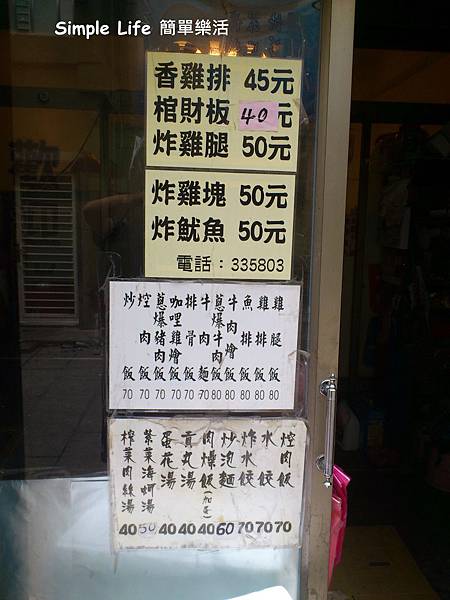 Simple Life 簡單樂活
香雞排 45元
棺財板 40元
炸雞腿 50元
炸雞塊 50元
炸魷魚 50元
電話：335803
雞腿飯 80
雞排飯 80
魚排飯 80
牛肉燴飯 80
蔥爆牛肉飯 80
牛肉麵 70
排骨飯 70
咖哩雞燴飯 70
蔥爆豬肉飯 70
控肉飯 70
炒飯 70
控肉飯 70
水餃 70
炸水餃 70
炒泡麵 60
肉燥飯(加蛋) 40
貢丸湯 40
蛋花湯 40
紫菜海蚵湯 50
榨菜肉絲湯 40